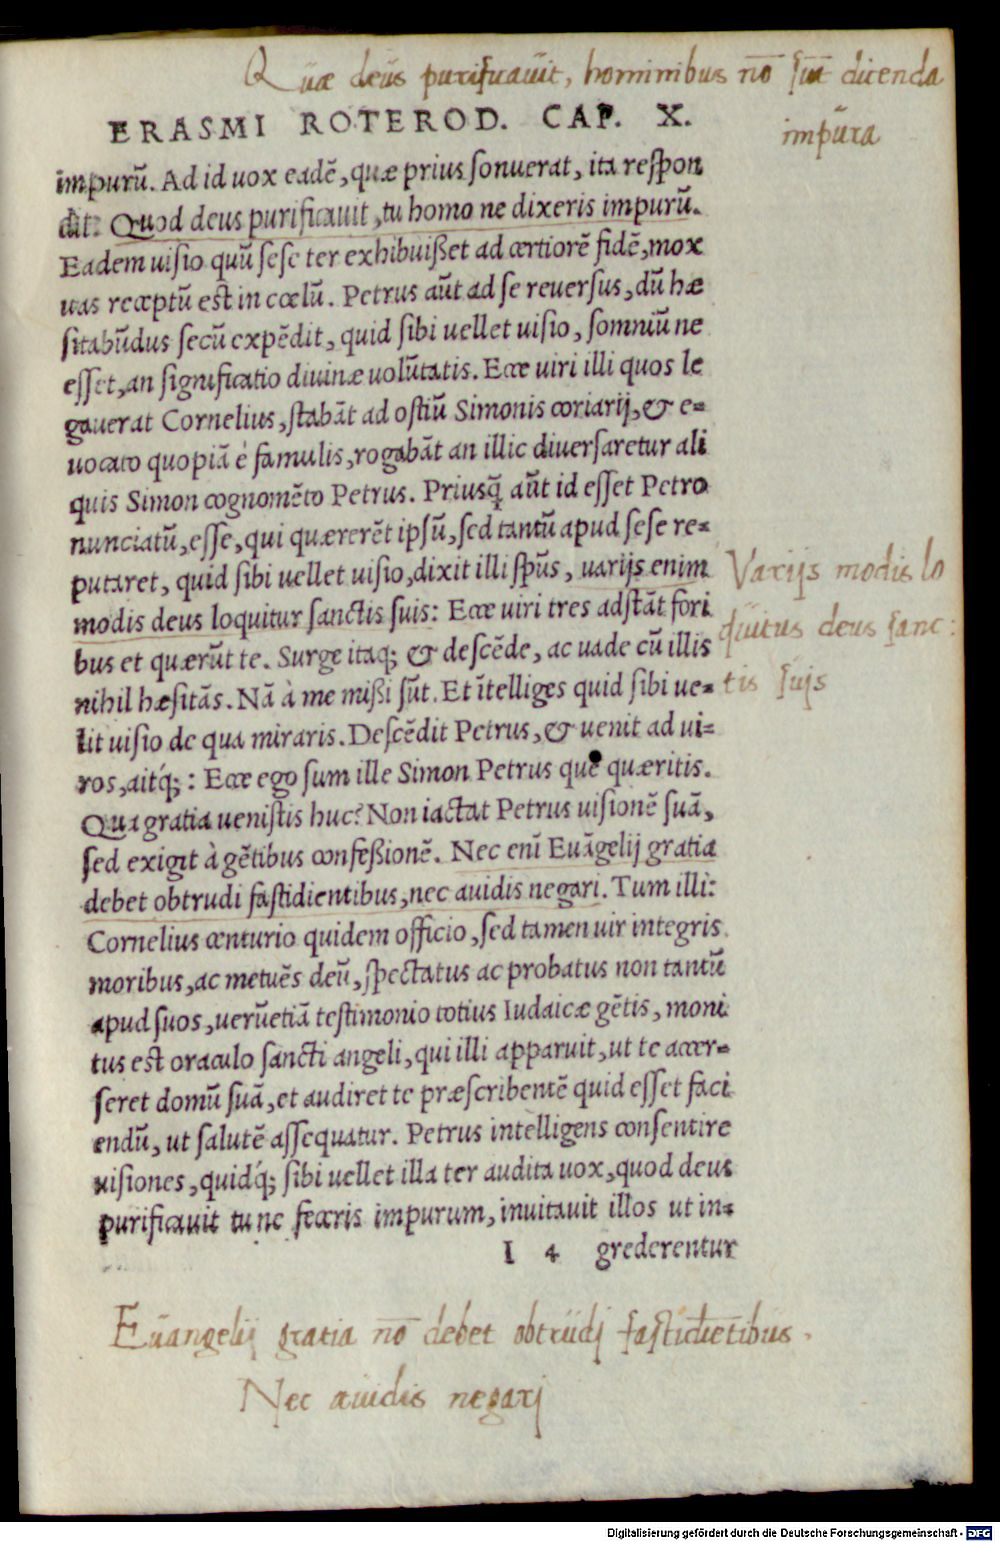 Quæ deus purificauit, hominibus nō sūt dicenda
impura
ERASMI ROTEROD. CAP. X.
impurū. Ad id uox eadē, quæ prius sonuerat, ita respon
dit: Quod deus purificauit, tu homo ne dixeris impurū.
Eadem uisio quū sese ter exhibuißet ad certiorē fidē, mox
uas receptū est in cœlū. Petrus aūt ad se reuersus, dū hæ
sitabūdus secū expēdit, quid sibi uellet uisio, somniū ne
esset, an significatio diuinæ uolūtatis. Ecce uiri illi quos le
gauerat Cornelius, stabāt ad ostiū Simonis coriarij, & e=
uocato quopiā è famulis, rogabāt an illic diuersaretur ali
quis Simon cognomēto Petrus. Priusq̄ aūt id esset Petro
nunciatū, esse, qui quærerēt ipsū, sed tantū apud sese re=
putaret, quid sibi uellet uisio, dixit illi spūs, uarijs enim
modis deus loquitur sanctis suis: Ecce uiri tres adstāt fori
bus et quærūt te. Surge itaq; & descēde, ac uade cū illis
nihil hæsitās. Nā à me mißi sūt. Et ītelliges quid sibi ue=
lit uisio de qua miraris. Descēdit Petrus, & uenit ad ui=
ros, aitq́;: Ecce ego sum ille Simon Petrus quē quæritis.
Qua gratia uenistis huc? Non iactat Petrus uisionē suā,
sed exigit à gētibus confeßionē. Nec enī Euāgelij gratia
debet obtrudi fastidientibus, nec auidis negari. Tum illi:
Cornelius centurio quidem officio, sed tamen uir integris
moribus, ac metuēs deū, spectatus ac probatus non tantū
apud suos, uerūetiā testimonio totius Iudaicæ gētis, moni
tus est oraculo sancti angeli, qui illi apparuit, ut te accer=
seret domū suā, et audiret te præscribentē quid esset faci
endū, ut salutē assequatur. Petrus intelligens consentire
uisiones, quidq́; sibi uellet illa ter audita uox, quod deus
purificauit tu ne feceris impurum, inuitauit illos ut in=
I 4 grederentur
Varijs modis lo
quitus deus sanc:
tis suis
Euangelij gratia nō debet obtrudj fastidiētibus.
Nec auidis negarj
Digitalisierung gefördert durch die Deutsche Forschungsgemeinschaft - DFG